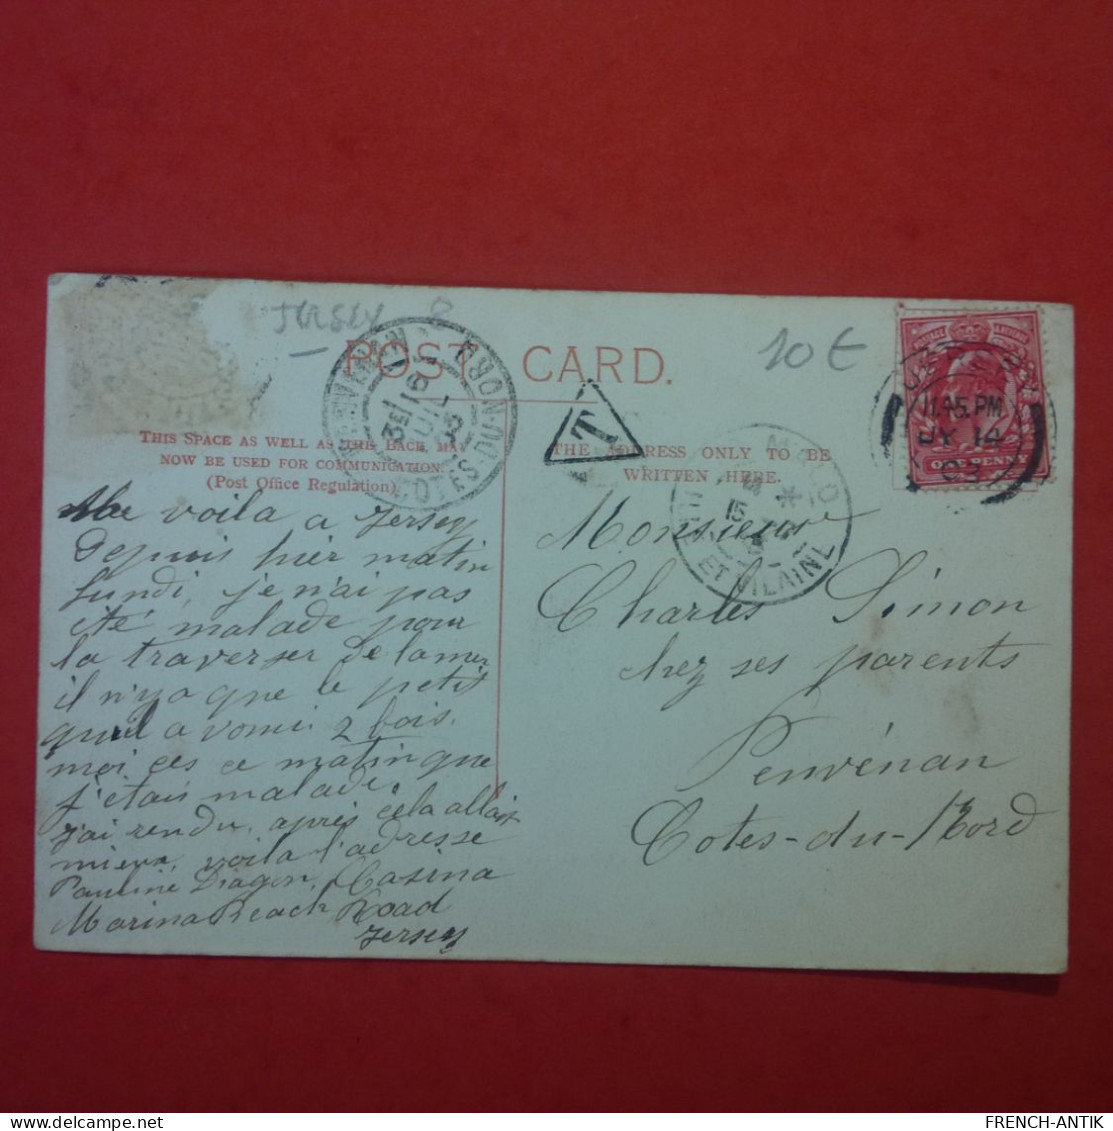 JERSEY
10 €
POST CARD.
THIS SPACE AS WELL AS THE BACK MAY
NOW BE USED FOR COMMUNICATION.
(Post Office Regulation)
THE ADDRESS ONLY TO BE
WRITTEN HERE.
T
11.45.PM
JY 14
03
ONE PENNY
15
ET VILAINE
16
COTES DU NORD
Me voila a Jersey
depuis hier matin
lundi, je n'ai pas
été malade pour
la traverser de la mer
il n'y a que le petit
qu'il a vomi 2 fois.
moi ces ce matin que
j'étais malade
j'ai rendu, après cela allait
mieux, voila l'adresse
Pauline Dragon, Casina
Marina Beach Road
Jersey
Monsieur
Charles Simon
chez ses parents
Penvénan
Cotes-du-Nord
FRENCH-ANTIK